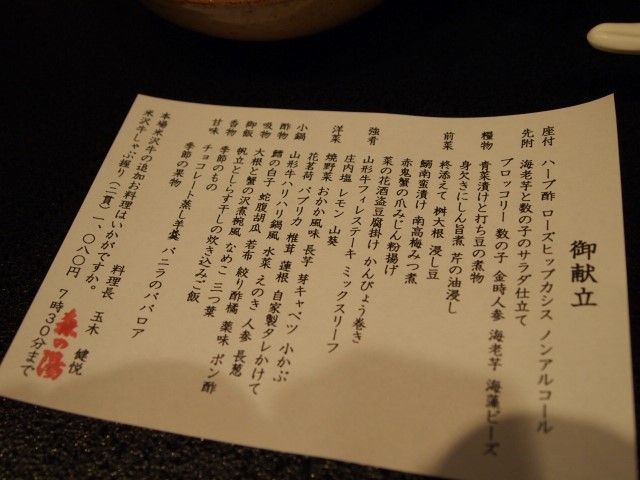 御献立
座付 ハーブ酢 ローズヒップカシス ノンアルコール
先附 海老芋と数の子のサラダ仕立て
ブロッコリー 数の子 金時人参 海老芋 海藻ビーズ
糧物 青菜漬けと打ち豆の煮物
身欠きにしん旨煮 芹の油浸し
前菜 柊添えて 桝大根 浸し豆
鰯南蛮漬け 南高梅みつ煮
赤鬼蟹の爪みじん粉揚げ
菜の花酒盗豆腐掛け かんぴょう巻き
強肴 山形牛フィレステーキ ミックスリーフ
庄内塩 レモン 山葵
洋菜 焼野菜 おかか風味 長芋 芽キャベツ 小かぶ
花茗荷 パプリカ 椎茸 蓮根 自家製タレかけて
小鍋 山形牛ハリハリ鍋風 水菜 えのき 人参 長葱
酢物 鱈の白子 蛇腹胡瓜 若布 絞り酢橘 薬味 ポン酢
吸物 大根と蟹の沢煮椀風 なめこ 三つ葉
御飯 帆立としらす干しの炊き込みご飯
香物 季節のもの
甘味 チョコレート蒸し羊羹 バニラのババロア
季節の果物
料理長 玉木 健悦
本場米沢牛の追加お料理はいかがですか。
米沢牛しゃぶ握り(二貫)一、〇八〇円 7時30分まで
森の湯